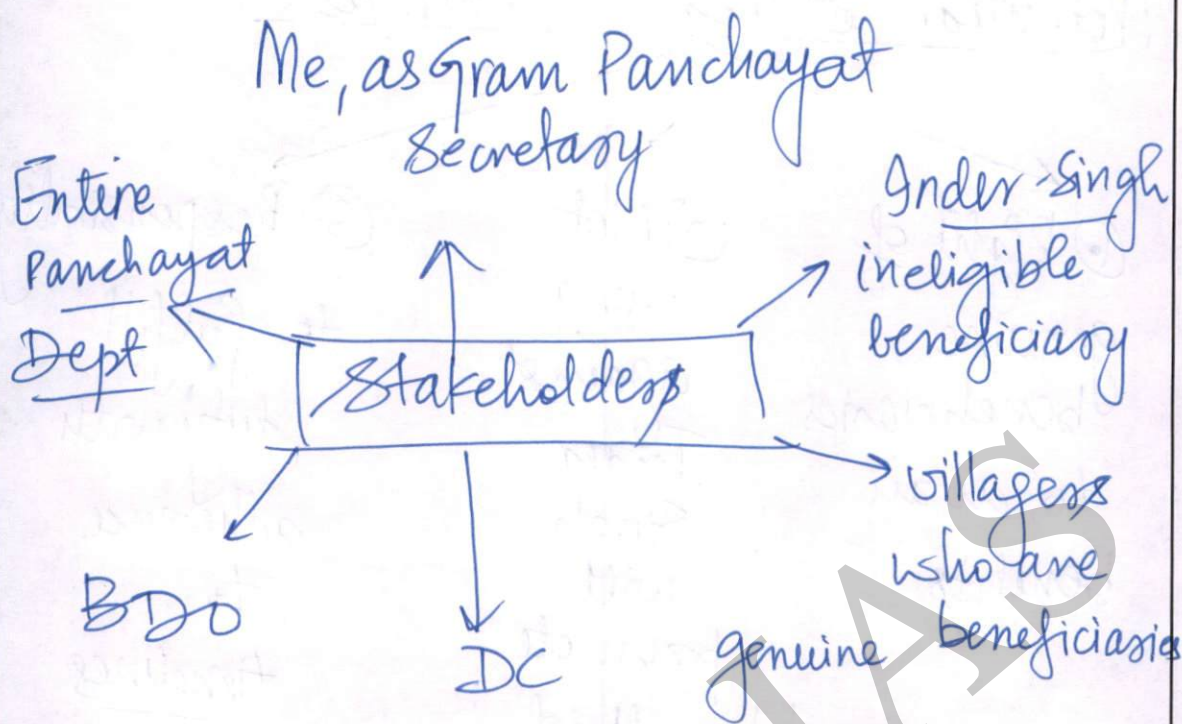 Me, as Gram Panchayat
Secretary
Entire
Panchayat
Dept
Inder Singh
ineligible
beneficiary
Stakeholders
villagers
who are
genuine beneficiaries
BDO
DC
IAS